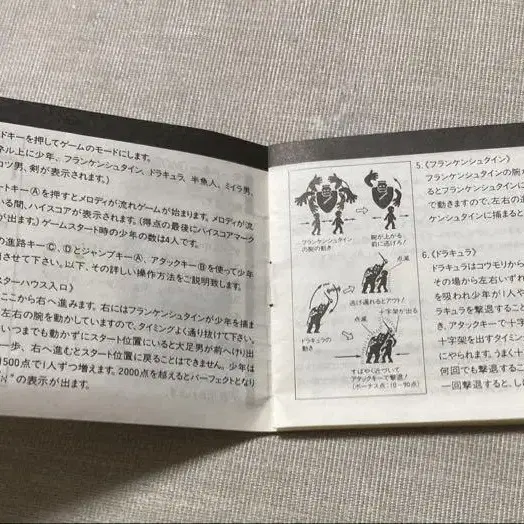 ドキーを押してゲームのモードにします。
ネル上に少年、フランケンシュタイン、ドラキュラ、半魚人、ミイラ男、
コツ男、剣が表示されます。)
ートキーⒶを押すとメロディが流れゲームが始まります。メロディが流
いる間、ハイスコアが表示されます。(得点の最後にハイスコアマーク
が出ます。)ゲームスタート時の少年の数は4人です。
の進路キーⒸ、ⒹとジャンプキーⒶ、アタックキーⒷを使って少年
出させて下さい。以下、その詳しい操作方法をご説明致します。
スターハウス入口〉
ここから右へ進みます。右にはフランケンシュタインが少年を捕ま
左右の腕を動かしていますので、タイミングよく通り抜けて下さい。
いつまでも動かずにスタート位置にいると大足男が前へけり出
一歩、右へ進むとスタート位置に戻ることはできません。少年は
1500点で1人ずつ増えます。2000点を越えるとパーフェクトとなり
の表示が出ます。
フランケンシュタイン
の腕の動き
腕が上がる
前に逃げろ!
点滅
逃げ遅れるとアウト!
十字架が出る
点滅
ドラキュラの
動き
すばやく近づいて
アタックキーで撃退!
(ボーナス点:10〜90点)
5.〈フランケンシュタイン〉
フランケンシュタインの腕が
るとフランケンシュタインに
で動きますので、左右の進
ケンシュタインに捕まると
6.〈ドラキュラ〉
ドラキュラはコウモリから
その場から左右いずれ
を吸われ少年が1人や
ラキュラを撃退するに
き、アタックキーで十字
十字架を出すタイミン
にやられます。うまく十
何回でも撃退すること
一回撃退すると、し